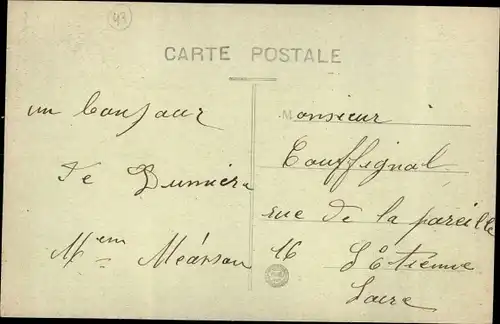 43
CARTE POSTALE
un bonjour
de Dunière
Mem Méassou
Monsieur
Couffignal
rue de la pareille
16 St Etienne
Loire